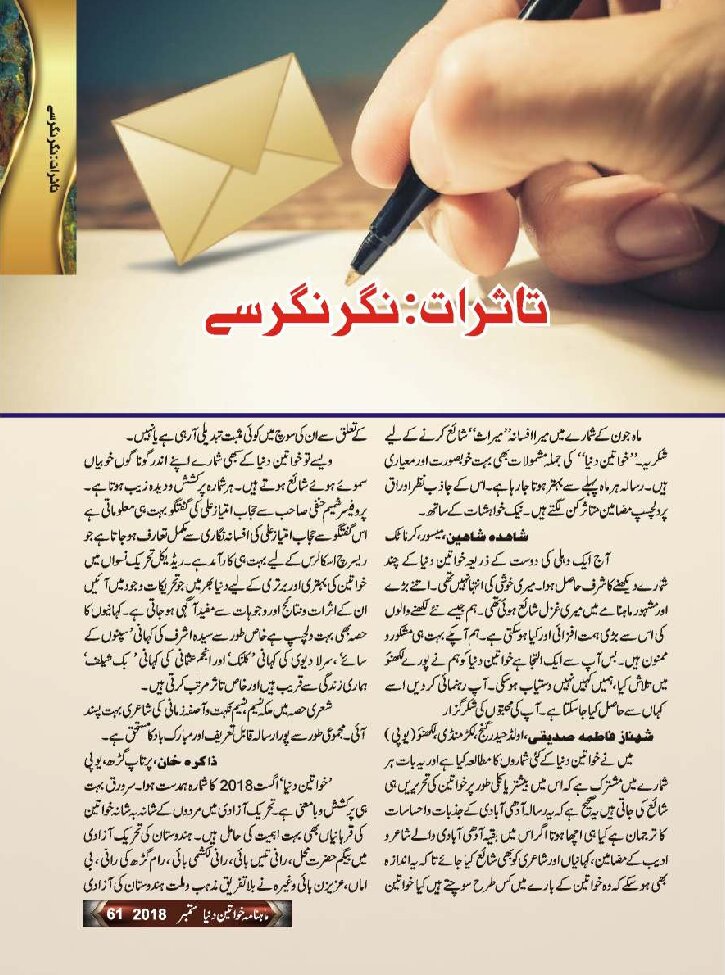 تاثرات: نگر نگر سے
تاثرات: نگر نگر سے
ماہ جون کے شمارے میں میرا افسانہ ”میراث“ شائع کرنے کے لیے
شکریہ۔ ”خواتین دنیا“ کی جملہ مشمولات بھی بہت خوبصورت اور معیاری
ہیں۔ رسالہ ہر ماہ پہلے سے بہتر ہوتا جا رہا ہے۔ اس کے جاذب نظر اوراق
پر دلچسپ مضامین متاثر کن لگتے ہیں۔ نیک خواہشات کے ساتھ۔
شاهدہ شاهین، میسور، کرناٹک
آج ایک دہلی کی دوست کے ذریعہ خواتین دنیا کے چند
شمارے دیکھنے کا شرف حاصل ہوا۔ میری خوشی کی انتہا نہیں تھی۔ اتنے بڑے
اور مشہور ماہنامے میں میری غزل شائع ہوئی تھی۔ ہم جیسے نئے لکھنے والوں
کی اس سے بڑی ہمت افزائی اور کیا ہو سکتی ہے۔ ہم آپ کے بہت ہی مشکور و
ممنون ہیں۔ بس آپ سے ایک التجا ہے خواتین دنیا کو ہم نے پورے لکھنؤ
میں تلاش کیا، ہمیں کہیں نہیں دستیاب ہو سکی۔ آپ رہنمائی کر دیں اسے
کہاں سے حاصل کیا جا سکتا ہے۔ آپ کی محبتوں کی شکر گزار
شهناز فاطمه صدیقی، اولڈ حیدر گنج، لکڑ منڈی، لکھنؤ (یو پی)
میں نے خواتین دنیا کے کئی شماروں کا مطالعہ کیا ہے اور یہ بات ہر
شمارے میں مشترک ہے کہ اس میں بیشتر یا کلی طور پر خواتین کی تحریریں ہی
شائع کی جاتی ہیں یہ صحیح ہے کہ یہ رسالہ آدھی آبادی کے جذبات و احساسات
کا ترجمان ہے کیا ہی اچھا ہوتا اگر اس میں بقیہ آدھی آبادی والے شاعر و
ادیب کے مضامین، کہانیاں اور شاعری کو بھی شائع کیا جائے تاکہ یہ اندازہ
بھی ہو سکے کہ وہ خواتین کے بارے میں کس طرح سوچتے ہیں کیا خواتین
کے تعلق سے ان کی سوچ میں کوئی مثبت تبدیلی آ رہی ہے یا نہیں۔
ویسے تو خواتین دنیا کے سبھی شمارے اپنے اندر گوناگوں خوبیاں
سموئے ہوئے شائع ہوتے ہیں۔ ہر شمارہ پرکشش و دیدہ زیب ہوتا ہے۔
پروفیسر شمیم حنفی صاحب سے حجاب امتیاز علی کی گفتگو بہت ہی معلوماتی ہے
اس گفتگو سے حجاب امتیاز علی کی افسانہ نگاری سے مکمل تعارف ہو جاتا ہے جو
ریسرچ اسکالرس کے لیے بہت ہی کارآمد ہے۔ ریڈیکل تحریک نسواں میں
خواتین کی بہتری اور برتری کے لیے دنیا بھر میں جو تحریکات وجود میں آئیں
ان کے اثرات و نتائج اور وجوہات سے مفید آگہی ہو جاتی ہے۔ کہانیوں کا
حصہ بھی بہت دلچسپ ہے خاص طور سے سیدہ اشرف کی کہانی ’سپنوں کے
سائے‘، سرلا دیوی کی کہانی ’کلنک‘ اور انجم عثمانی کی کہانی ’بک شیلف‘
ہماری زندگی سے قریب ہیں اور خاص تاثر مرتب کرتی ہیں۔
شعری حصہ میں ملکہ نسیم، نسیم نکہت و آصفہ زمانی کی شاعری بہت پسند
آئی۔ مجموعی طور سے پورا رسالہ قابل تعریف اور مبارک باد کا مستحق ہے۔
ذاکره خان، پرتاپ گڑھ، یو پی
’خواتین دنیا‘ اگست 2018 کا شمارہ ہمدست ہوا۔ سرورق بہت
ہی پرکشش و بامعنی ہے۔ تحریک آزادی میں مردوں کے شانہ بہ شانہ خواتین
کی قربانیاں بھی بہت اہمیت کی حامل ہیں۔ ہندوستان کی تحریک آزادی
میں بیگم حضرت محل، رانی تیس بائی، رانی لکشمی بائی، رام گڑھ کی رانی، بی
اماں، عزیزن بائی وغیرہ نے بلا تفریق مذہب و ملت ہندوستان کی آزادی
ماہنامہ خواتین دنیا ستمبر 2018 61